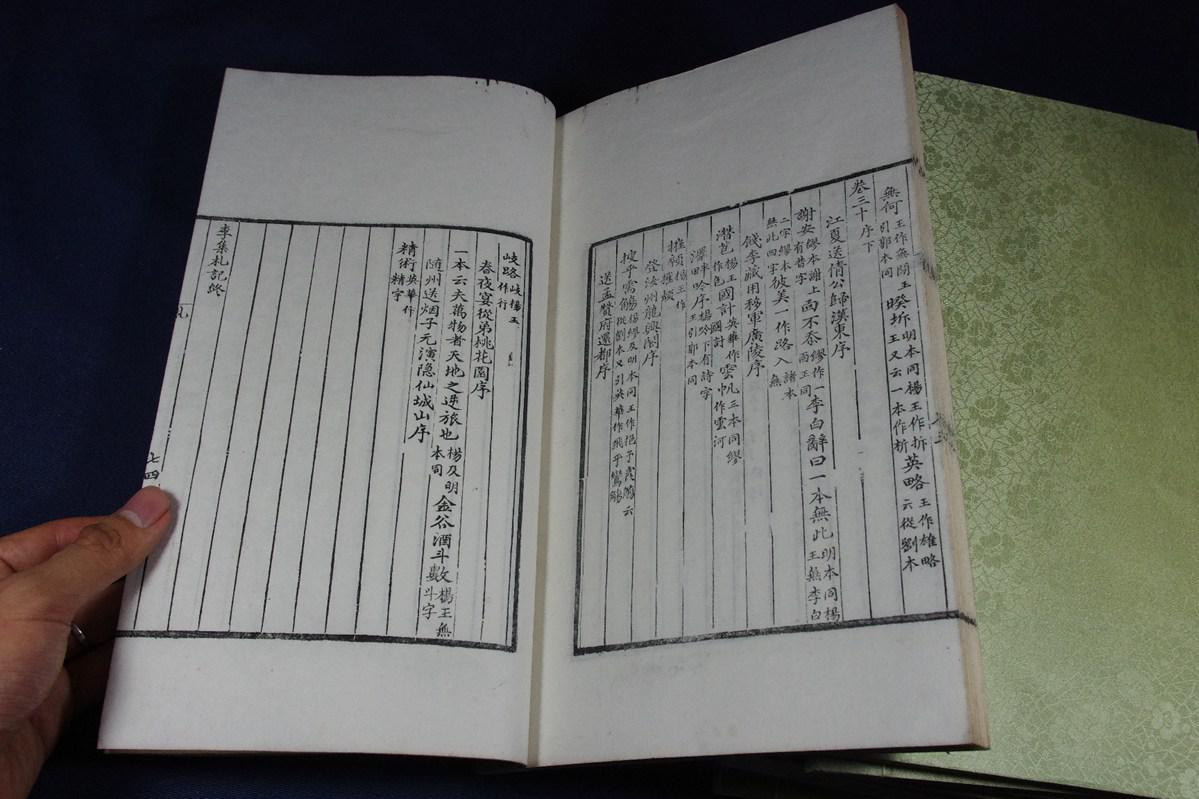 無何王作無閒王引郭本同暌坼明本同楊王作拆王又云一本作析英略王作雄略云從劉本
卷三十序下
江夏送倩公歸漢東序
謝安繆本謝上有昔字而不泰繆作一李白辭曰一本無此明本同楊王無李白
二字繆本無此四字彼美一作路入諸本無
餞李副使藏用移軍廣陵序
濳包楊王作包國計英華作國計雲帆三本同繆作雲河
澤畔吟序楊吟下有詩字王引郭本同
摧頹楊王作摧殘
登汝州龍興閣序
送孟贊府還都序
岐路岐楊王作行
春夜宴從弟桃花園序
一本云夫萬物者天地之逆旅也楊及明本同金谷酒斗數楊王無斗字
隨州送烟子元演隐仙城山序
精術英華作精字
李集札記終
七四